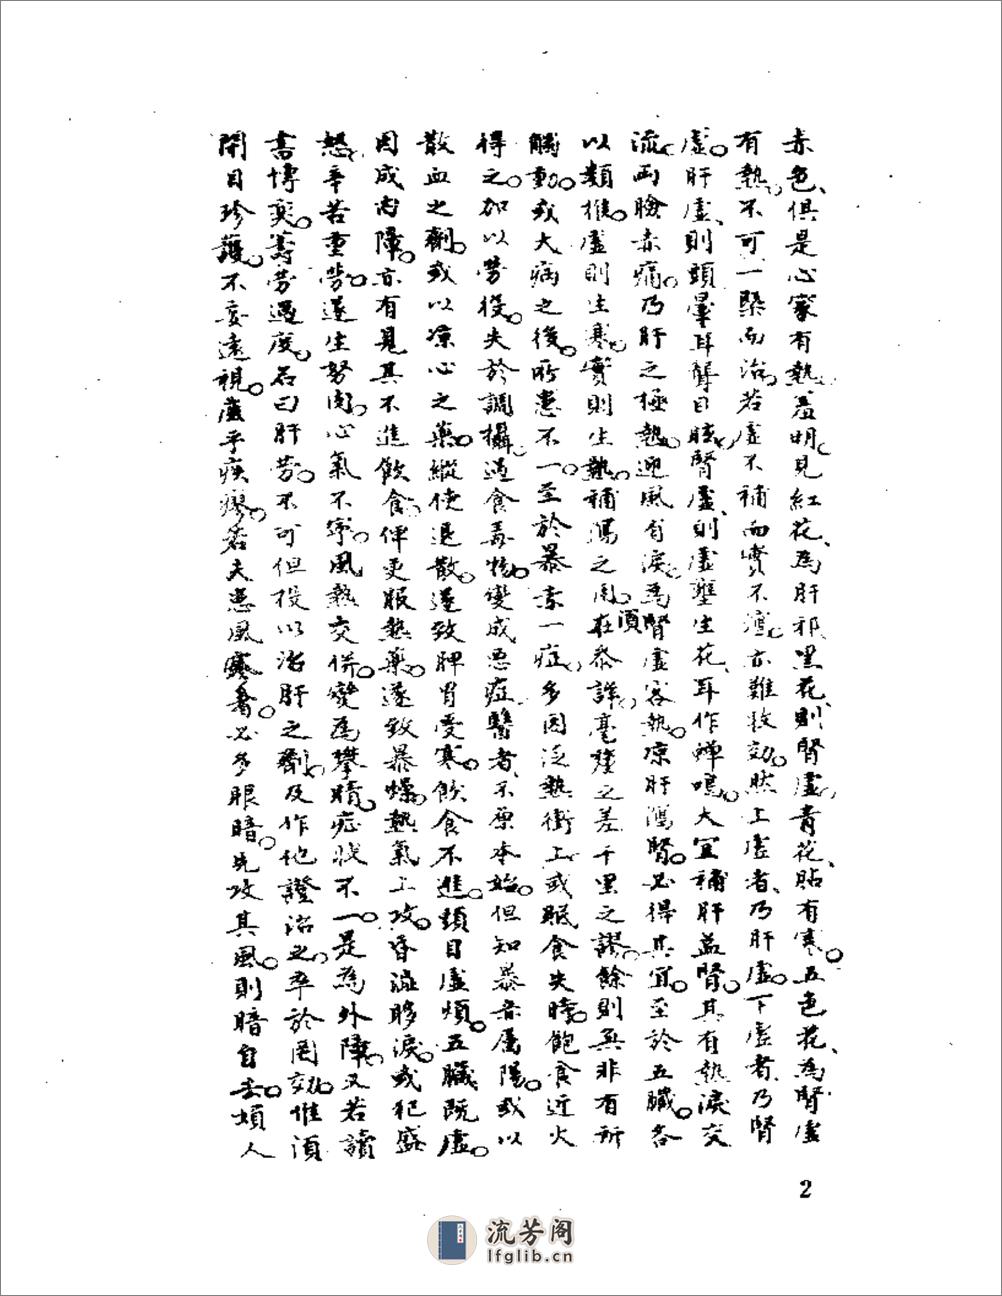 赤色、俱是心家有熱、羞明、見紅花、為肝邪、黑花、則腎虛、青花、胎有寒。五色花、為腎虛
有熱。不可一槩而治。若虛不補而實不瀉。亦難收効。然上虛者、乃肝虛。下虛者、乃腎
虛。肝虛、則頭暈耳聾目眩。腎虛、則虛壅生花、耳作蟬鳴。大宜補肝益腎。其有熱淚交
流。兩瞼赤痛。乃肝之極熱。迎風有淚。為腎虛客熱。凉肝瀉腎。必得其宜。至於五臟。各
以類推。虛則生寒。實則生熱。補瀉之用。須在參詳。毫釐之差、千里之謬。餘則無非有所
觸動。或大病之後。所患不一。至於暴赤一症、多因泛熱衝上、或眠食失時。飽食近火
得之。加以勞役。失於調攝。過食毒物。變成惡症。醫者、不原本始。但知暴赤屬陽。或以
散血之劑。或以凉心之藥。縱使退散。遂致脾胃受寒。飲食不進。頭目虛煩。五臟既虛。
因成內障。亦有見其不進飲食、俾更服熱藥。遂致暴燥。熱氣上攻。昏澁眵淚。或犯盛
怒、辛苦重勞。遂生努肉、心氣不寧。風熱交併。變為攀睛。症狀不一。是為外障。又若讀
書博奕。等勞過度。名曰肝勞。不可但投以治肝之劑。及作他證治之。卒於罔効。惟須
閉目珍護。不妄遠視。庶乎疾瘳。若夫患風寒者。必多眼暗。先攻其風。則暗自去。婦人
2
流芳阁
lfglib.cn